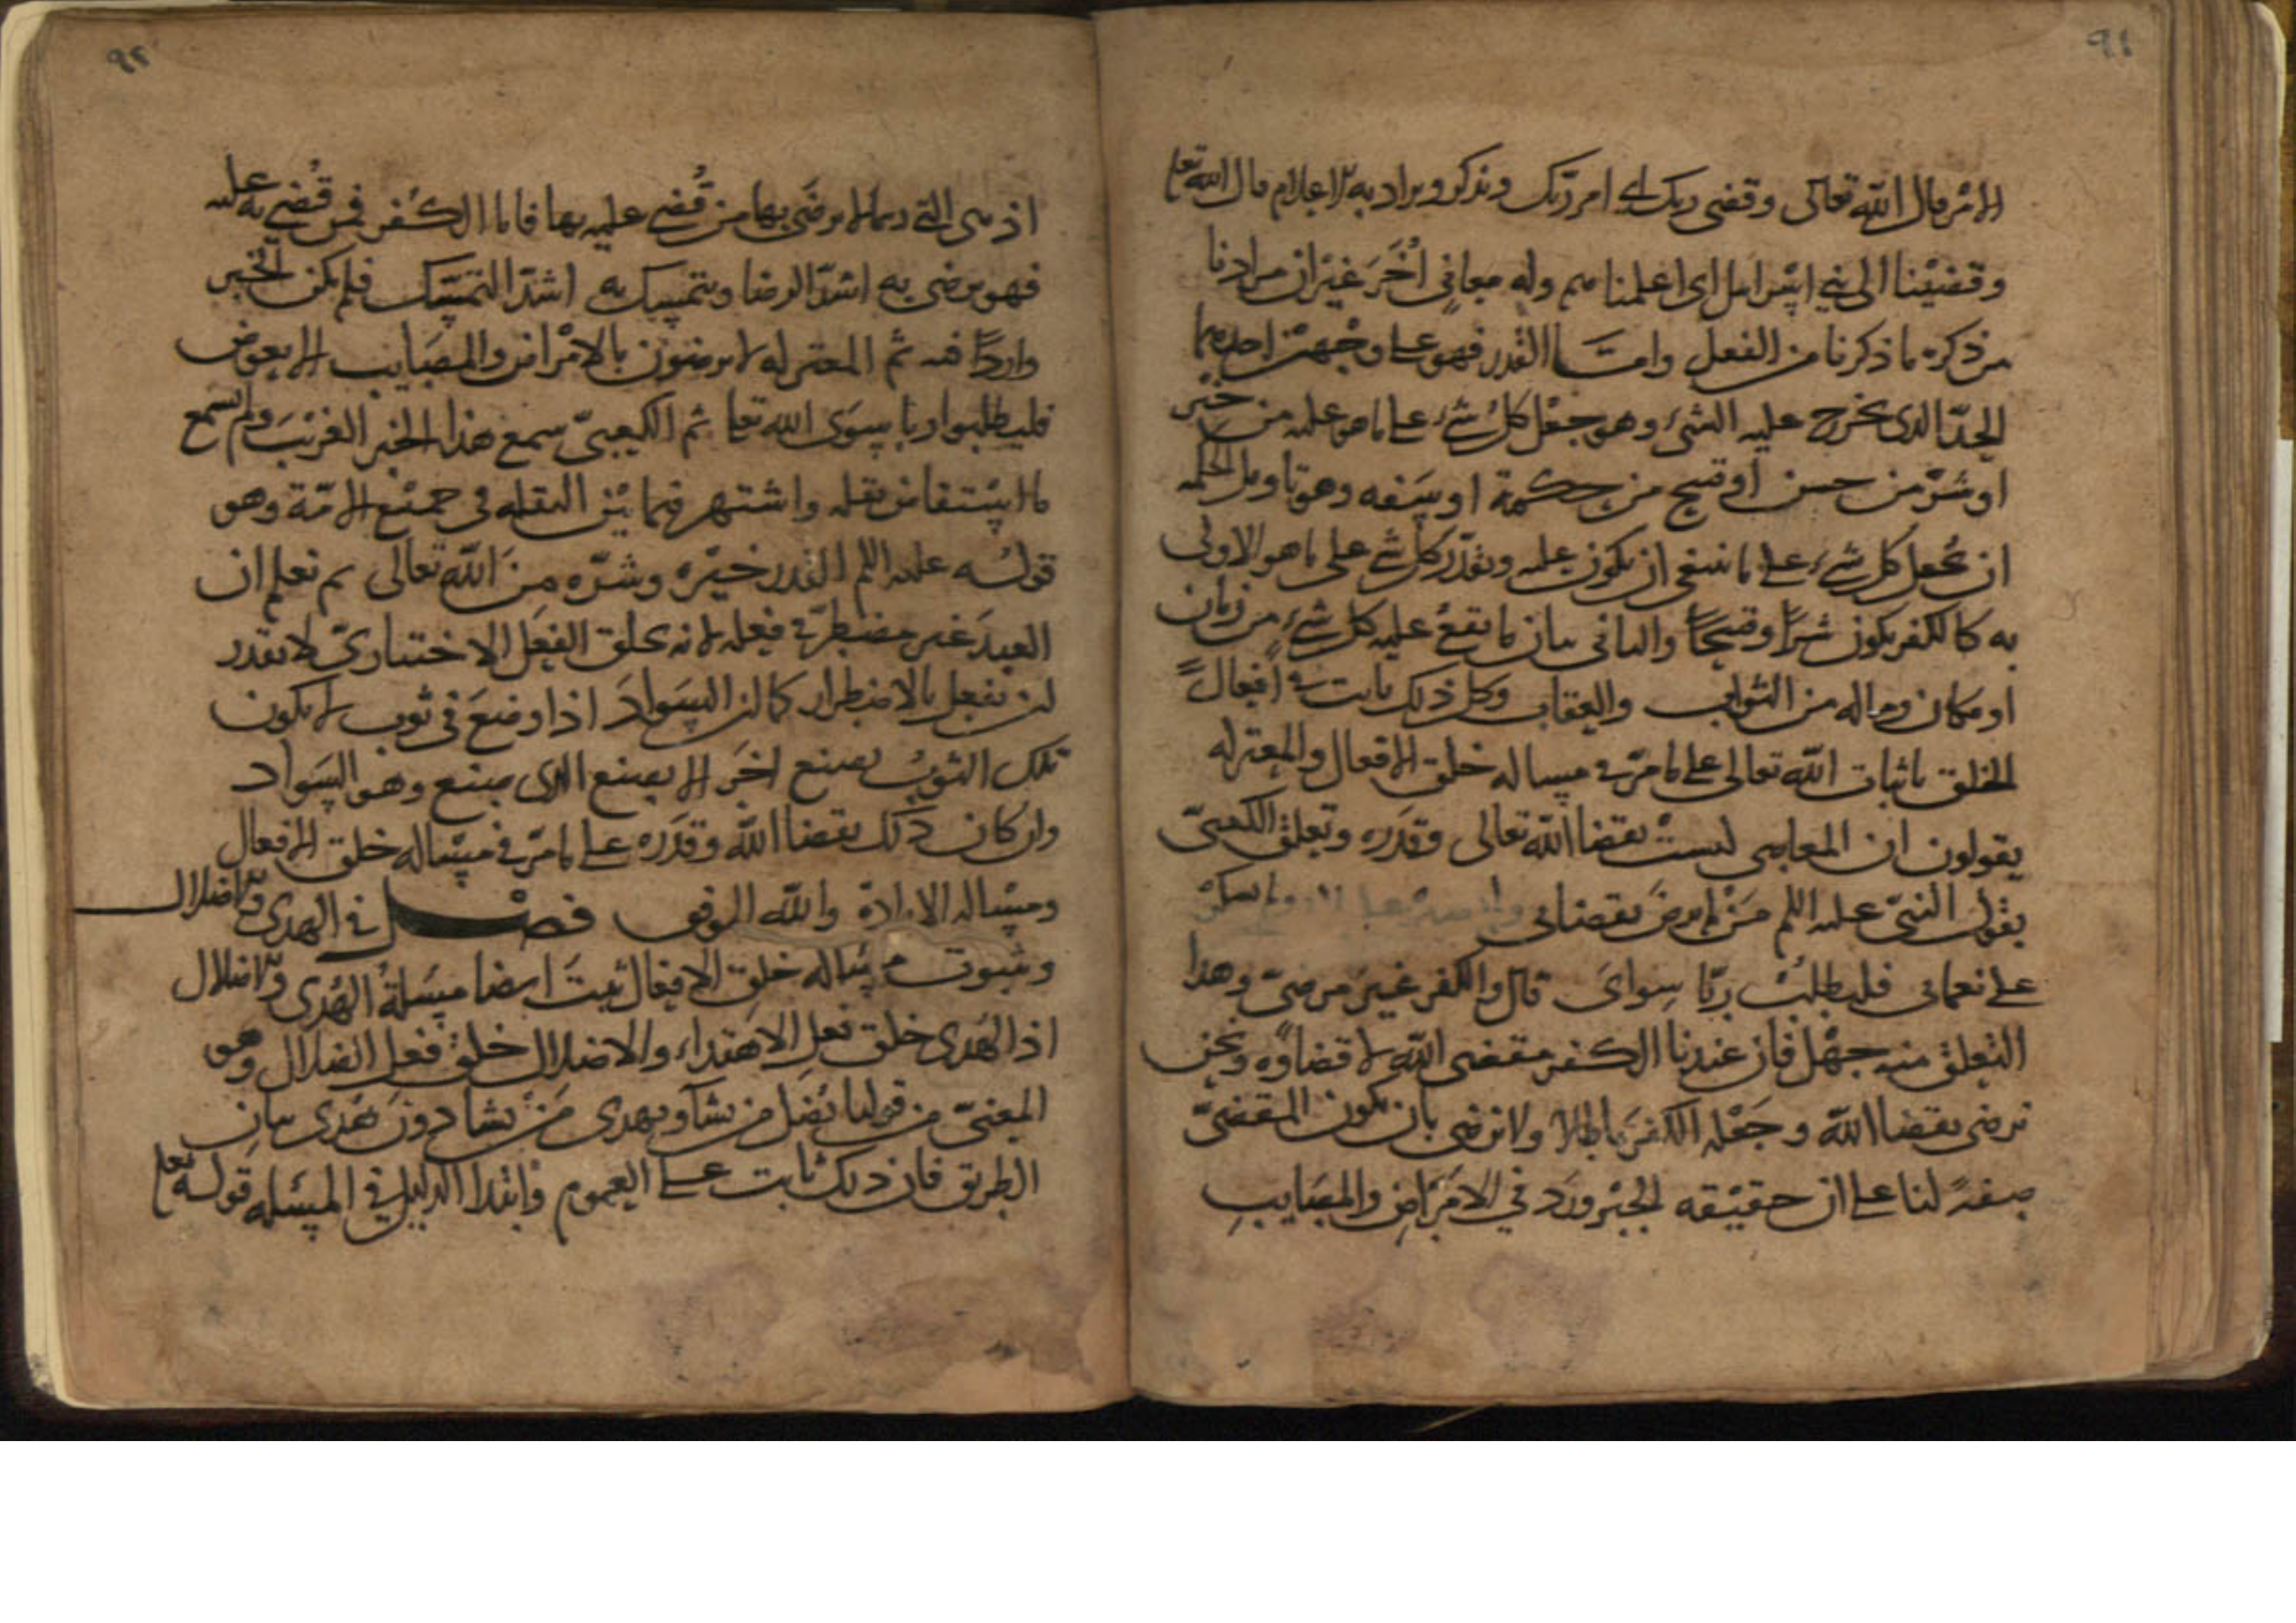 ٩١
الامر قال الله تعالى وقضى ربك اي امر ربك ويذكر ويراد به الاعلام قال الله تعا
وقضينا الى بني اسرايل اى اعلمناهم وله معاني اُخَر غير ان مرادنا
من ذكره ما ذكرنا من الفعل وامــا القدر فهو على وجهين احدهما
الحدّ الذى يخرج عليه الشيء وهو جعْل كل شيء على ما هو عليه من خير
او شرّ من حسن او قبيح من حكمة او سفه وهو تاويل الحكمه
ان يجعل كل شيء على ما ينبغي ان يكون عليه ويقدّر كل شي على ما هو الاولى
به كالكفر يكون شراً وقبيحاً والثاني بيان ما يقع عليه كل شيء من زمان
او مكان وماله من الثواب والعقاب وكل ذلك ثابت في افعال
الخلق باثبات الله تعالى على ما مرّ في مساله خلق الافعال والمعتزله
يقولون ان المعاصي ليست بقضا الله تعالى وقدره وتعلق الكعبيّ
بقول النبيّ عليه السلم مَن لم يرضَ بقضائي ولم يصبر على بلائي ولم يشكر
على نعمائى فليطلب ربّا سواى قال والكفر غير مرضيّ وهذا
التعلق منه جهل فان عندنا الكفر مقضى الله لا قضاؤه ونحن
نرضى بقضا الله وجعْله الكفر باطلا ولا نرضى بان يكون المقضيّ
صفةً لنا على ان حقيقه الخبر ورد في الامراض والمصايب
٩٢
اذ هى التي ربما لا يرضى بها من قُضي عليه بها فاما الكفر فمن قُضي به عليه
فهو يرضى به اشدّ الرضا ويتمسك به اشدّ التمسّك فلم يكن الخبر
وارداً فيه ثم المعتزله لا يرضون بالامراض والمصايب الا بعوض
فليطلبوا ربا سوى الله تعا ثم الكعبيّ سمع هذا الخبر الغريب ولم يسمع
ما استفاض نقله واشتهر فيما بين النقله في جميع الامّة وهو
قوله عليه السلم القدر خيره وشرّه من الله تعالى ثم نعلم ان
العبد غير مضطرّ في فعله لانه بخلق الفعل الاختياريّ لا نقدر
لن نفعل بالاضطرار كما لن السواد اذا وضعَ في ثوب لا يكون
تلك الثوب بصنع اخر الا بصنع الذى صنع وهو السواد
وان كان ذلك بقضا الله وقدَره على ما مرّ في مساله خلق الافعال
ومساله الارادة والله الموفق فصــل في الهدى والاضلال
وثبوت مساله خلق الافعال ثبت ايضا مسَلة الهُدى والاضلال
اذ الهُدى خلق فعل الاهتداء والاضلال خلق فعل الضلال وهو
المعنيّ من قولنا يُضل من يشا ويهدى مَن يشا دون هُدى بيان
الطريق فان ذلك ثابت على العموم وابتدا الدليل في المسَله قوله تعا